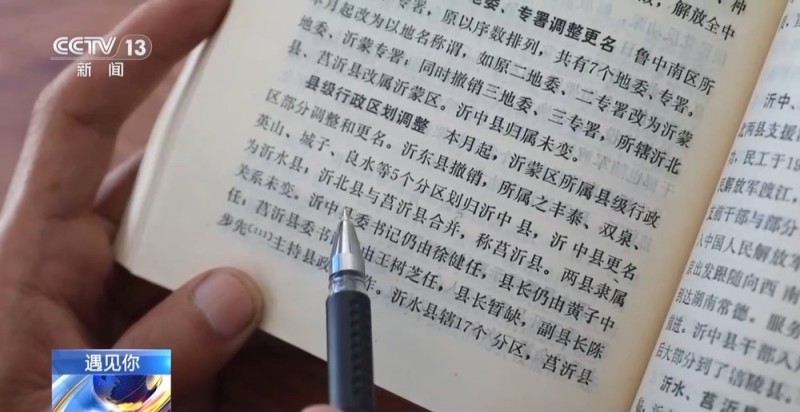 CCTV 13
新闻
地委、专署调整更名 鲁中南区所
月起改为以地名称谓,如原二地委、二专署改为沂蒙
专署,原以序数排列,共有7个地委、专署。
委、沂蒙专署;同时撤销三地委、三专署,所辖沂北
县、莒沂县改属沂蒙区。沂中县归属未变。
县级行政区划调整 本月起,沂蒙区所属县级行政
区部分调整和更名。沂东县撤销,所属之丰泰、双泉、
英山、城子、良水等5个分区划归沂中县,沂中县更名
为沂水县;沂北县与莒沂县合并,称莒沂县。两县隶属
关系未变。沂中 委书记仍由徐健任,县长仍由黄子中
任;莒沂县委书 由王树芝任,县长暂缺,副县长陈
步先 主持县政 作。沂水县辖17个分区,莒沂县
解放全中
沂中、
两县支援
,民工于19
解放军渡江,
支前干部与部分
人中国人民解放军
京出发跟随向西南
到达湖南常德。服务
前进。沂中县干部人
后大部分到了涪陵县。
沂水、莒沂
遇见你